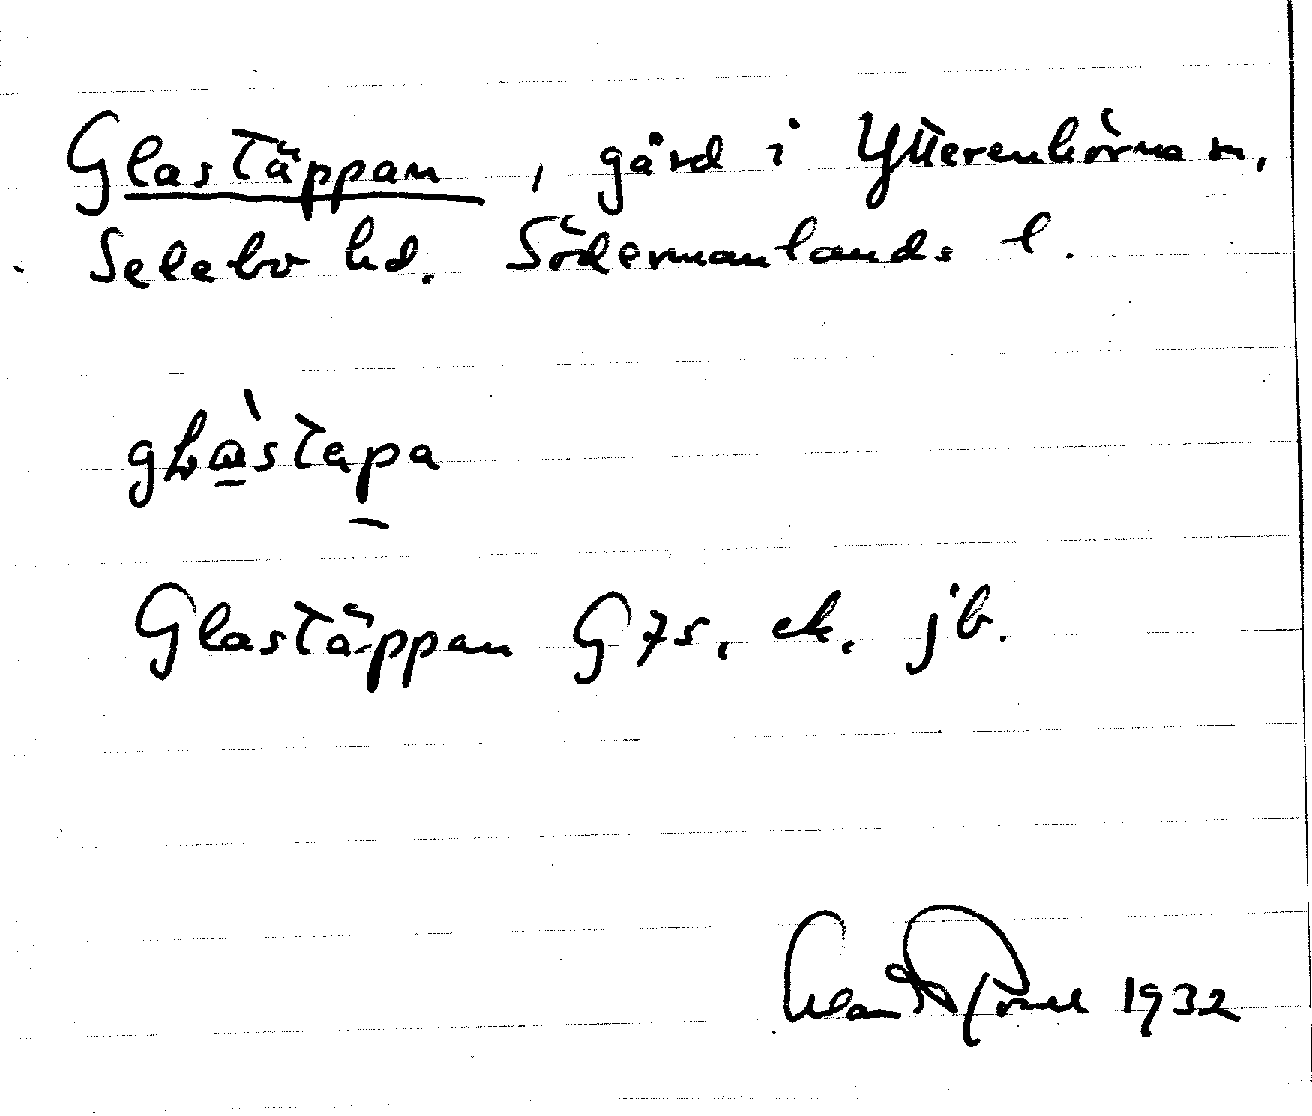 Glastäppan, gård i Ytterenhörna sn,
Selebo hd. Södermanlands l.
glàstapa
Glastäppan G 75, ek. jb.
1932